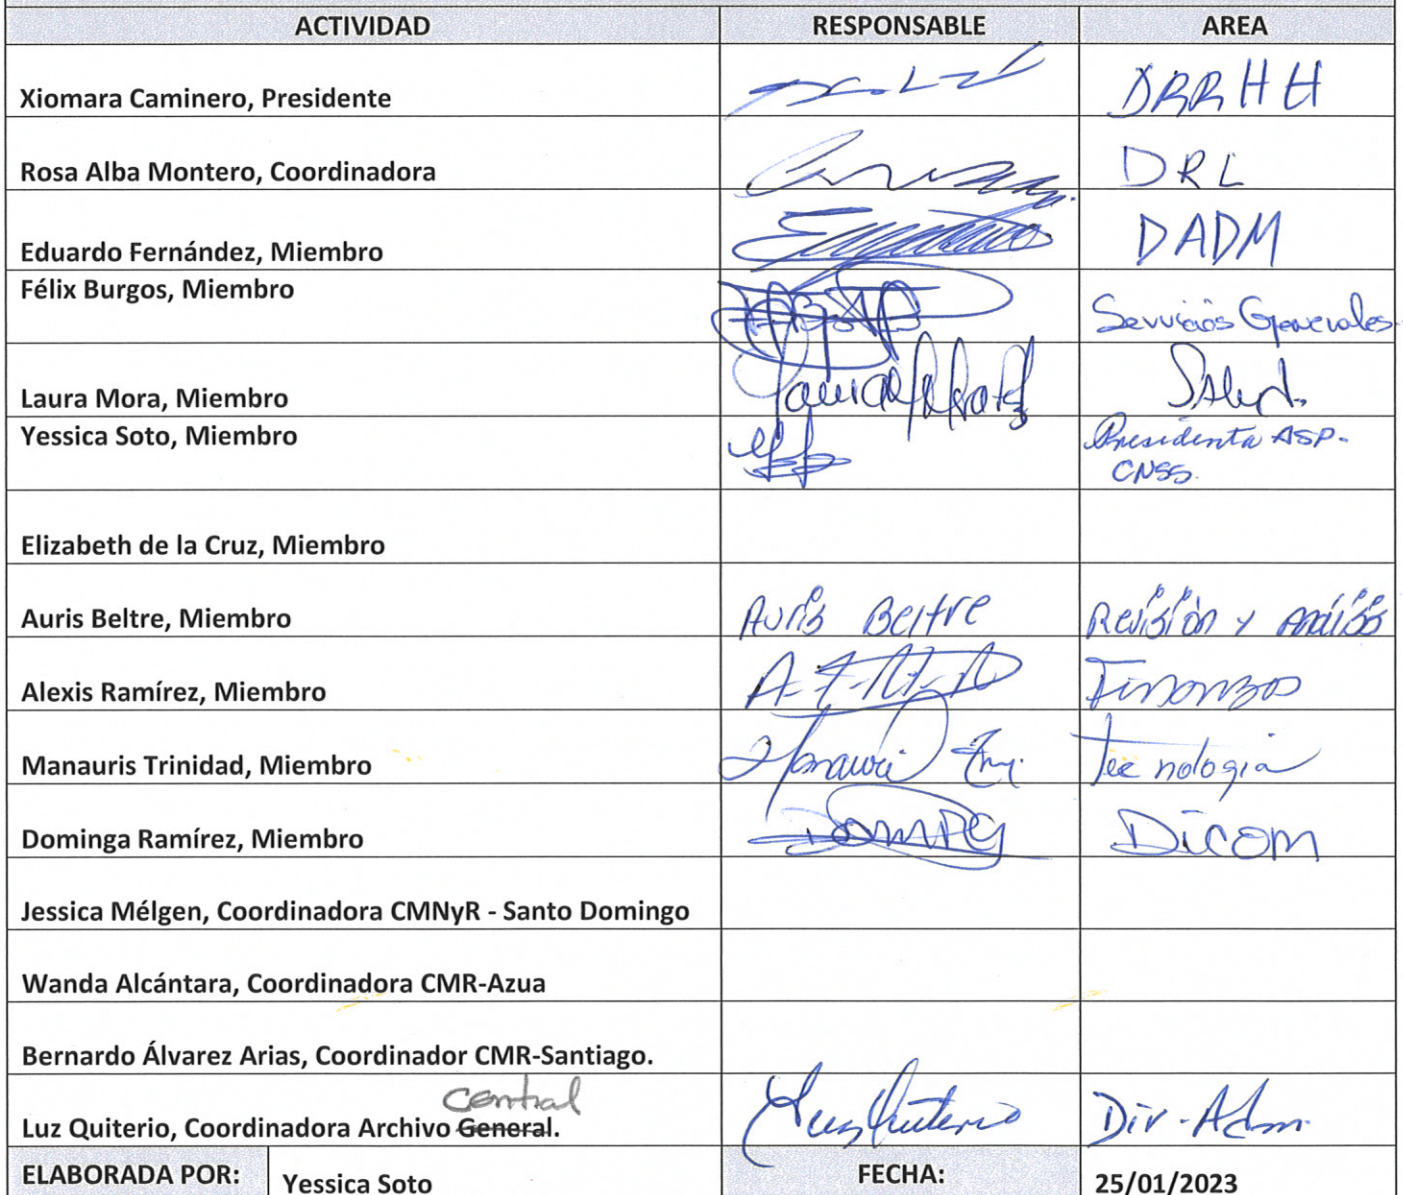 ACTIVIDAD RESPONSABLE AREA
Xiomara Caminero, Presidente DRRHH
Rosa Alba Montero, Coordinadora DRL
Eduardo Fernández, Miembro DADM
Félix Burgos, Miembro Servicios Generales
Laura Mora, Miembro Salud
Yessica Soto, Miembro Presidenta ASP-
CNSS.
Elizabeth de la Cruz, Miembro
Auris Beltre, Miembro Auris Beltre Revisión y Análisis
Alexis Ramírez, Miembro Finanzas
Manauris Trinidad, Miembro Tecnologia
Dominga Ramírez, Miembro Dicom
Jessica Mélgen, Coordinadora CMNyR - Santo Domingo
Wanda Alcántara, Coordinadora CMR-Azua
Bernardo Álvarez Arias, Coordinador CMR-Santiago.
Central
Luz Quiterio, Coordinadora Archivo General. Luz Quiterio Div-Adm.
ELABORADA POR: Yessica Soto FECHA: 25/01/2023